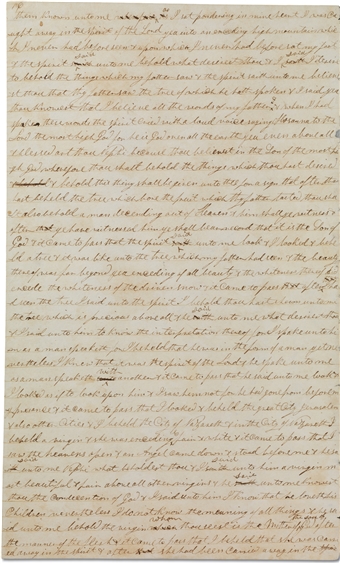 them known unto me as I sat pondering in mine heart I was ca
ught away in the Spirit of the Lord yea into an exceeding high mountain which
I never had before seen & upon which I never had before set my foot
& the spirit saith unto me behold what desirest thou & I said I desire
to behold the things which my father saw & the spirit saith unto me believe
st thou that thy father saw the tree of which he hath spoken & I said yea
thou knowest that I believe all the words of my father & when I had
spoken these words the spirit cried with a loud voice saying Hosanna to the
Lord the most high God for he is God over all the earth yea even above all
& blessed art thou Nephi because thou believest in the Son of the most hi
gh God wherefore thou shalt behold the things which thou hast desired
& behold this thing shall be given unto thee for a sign that after thou
hast beheld the tree which bore the fruit which thy father tasted thou sha
lt also behold a man descending out of Heaven & him shall ye witness &
after ye have witnessed him ye shall bear record that it is the Son of
God & it came to pass that the spirit said unto me look & I looked & behel
d a tree & it was like unto the tree which my father had seen & the beauty
thereof was far beyond yea exceeding of all beauty & the whiteness thereof did
exceed the whiteness of the driven snow & it came to pass after I had
seen the tree I said unto the spirit I behold thou hast shewn unto me
the tree which is precious above all & he said unto me what desirest thou
& I said unto him to know the interpretation thereof for I spake unto hi
m as a man speaketh for I beheld that he was in the form of a man yet ne
vertheless I knew that it was the spirit of the Lord & he spake unto me
as a man speaketh with another & it came to pass that he said unto me look &
I looked as if to look upon him & I saw him not for he had gone from before m
y presence & it came to pass that I looked & beheld the great City Jerusalem
& also other Cities & I beheld the City of Nazareth & in the City of Nazareth I
beheld a virgin & she was exceeding fair & white & it came to pass that I
saw the heavens open & an Angel came down & stood before me & he sa
id unto me Nephi what beholdest thou & I said unto him a virgin mo
st beautiful & fair above all other virgins & he said unto me knowest
thou the Condescension of God & I said unto him I know that he loveth his
Children nevertheless I do not know the meaning of all things & he sa
id unto me behold the virgin whom thou seest is the Mother of God after
the manner of the flesh & it came to pass that I beheld that she was carri
ed away in the spirit & after she had been carried away in the